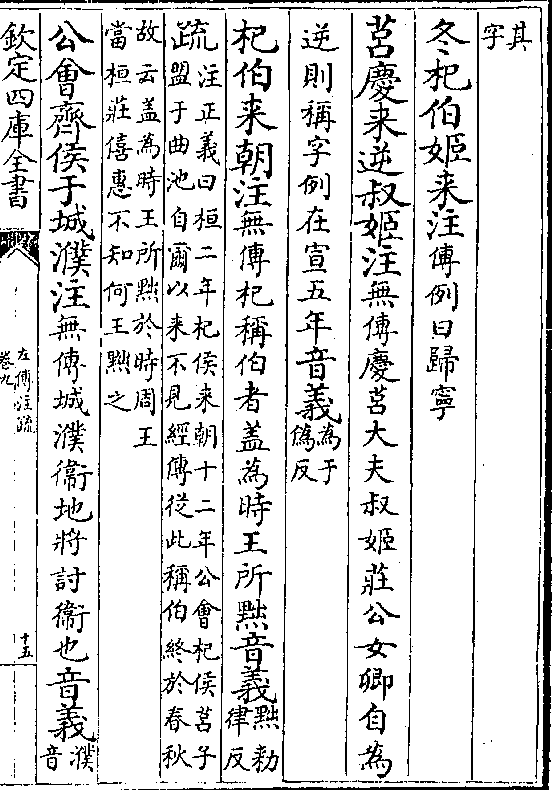 其
字
冬杞伯姬来注傳例曰歸寧
莒慶来逆叔姬注無傳慶莒大夫叔姬莊公女卿自為
逆則稱字例在宣五年音義為于
偽反
杞伯来朝注無傳杞稱伯者盖為時王所黜音義黜勑
律反
疏注正義曰桓二年杞侯来朝十二年公會杞侯莒子
盟于曲池自爾以来不見經傳從此稱伯終於春秋
故云盖為時王所黜於時周王
當桓莊僖惠不知何王黜之
公會齊侯于城濮注無傳城濮衞地將討衞也音義濮
音
欽定四庫全書
左傳注疏
卷九
十五